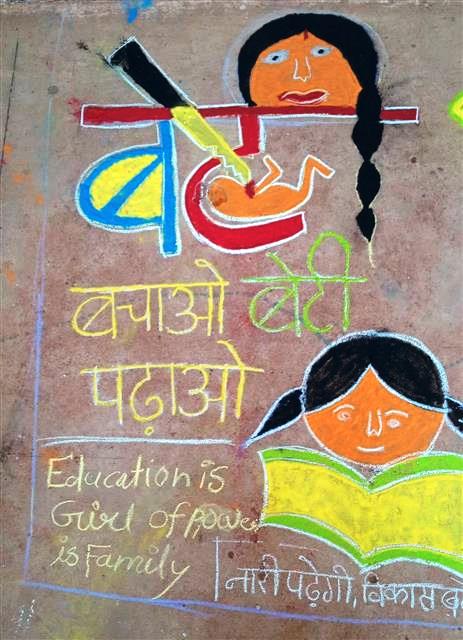 बेटी
बचाओ बेटी
पढ़ाओ
Education is
Guirl of Power
is Family
नारी पढ़ेगी, विकास